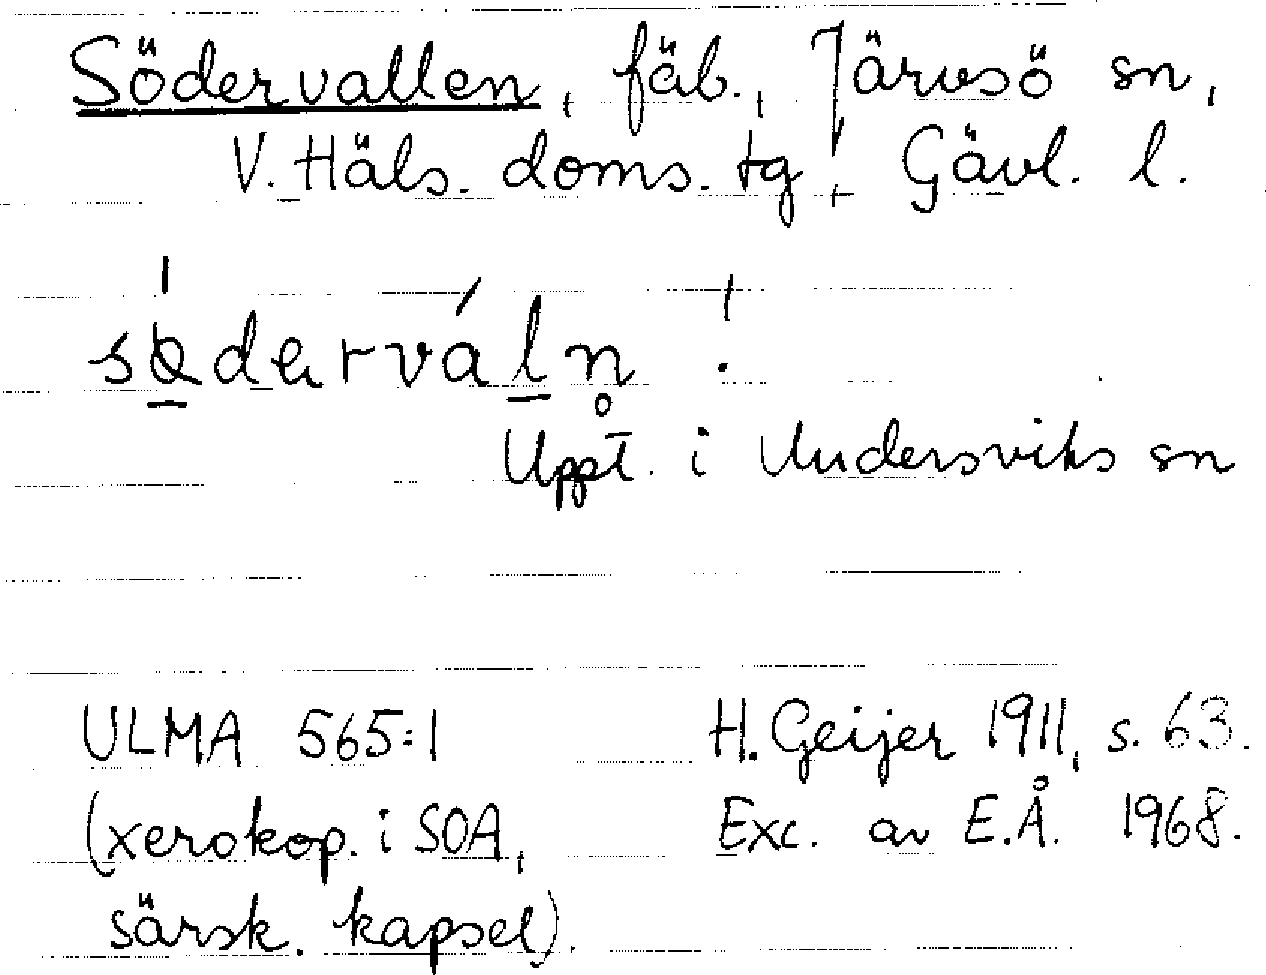 Södervallen, fäb., Järvsö sn,
V. Häls. doms. tg, Gävl. l.
Uppt. i Undersviks sn
ULMA 565:1
(xerokop. i SOA,
särsk. kapsel).
H. Geijer 1911, s. 63.
Exc. av E.Å. 1968.